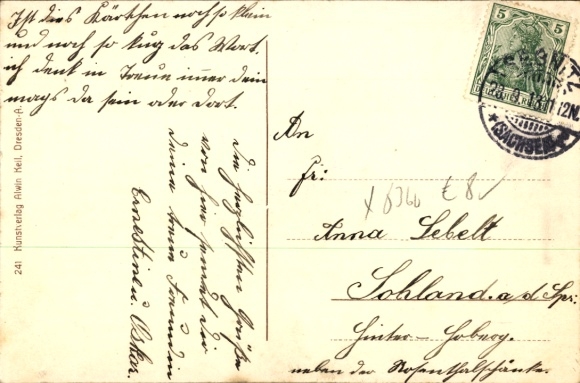 Ist dies Kärtchen noch so klein
und noch so kug das Wort,
ich denk in Treue imer dein
mags da sein oder dort.
Die herzlichsten Grüße
von hier sendet Dir
deine treue Freundin
Ernestine u. Oskar.
241 Kunstverlag Alwin Keil, Dresden-A.
5 5
(SACHSEN)
An
Fr:
€ 8
Anna Sebelt
Sohland. a/d Spr:
Hinter-Hoberg.
neben der Rosenthalschänke.